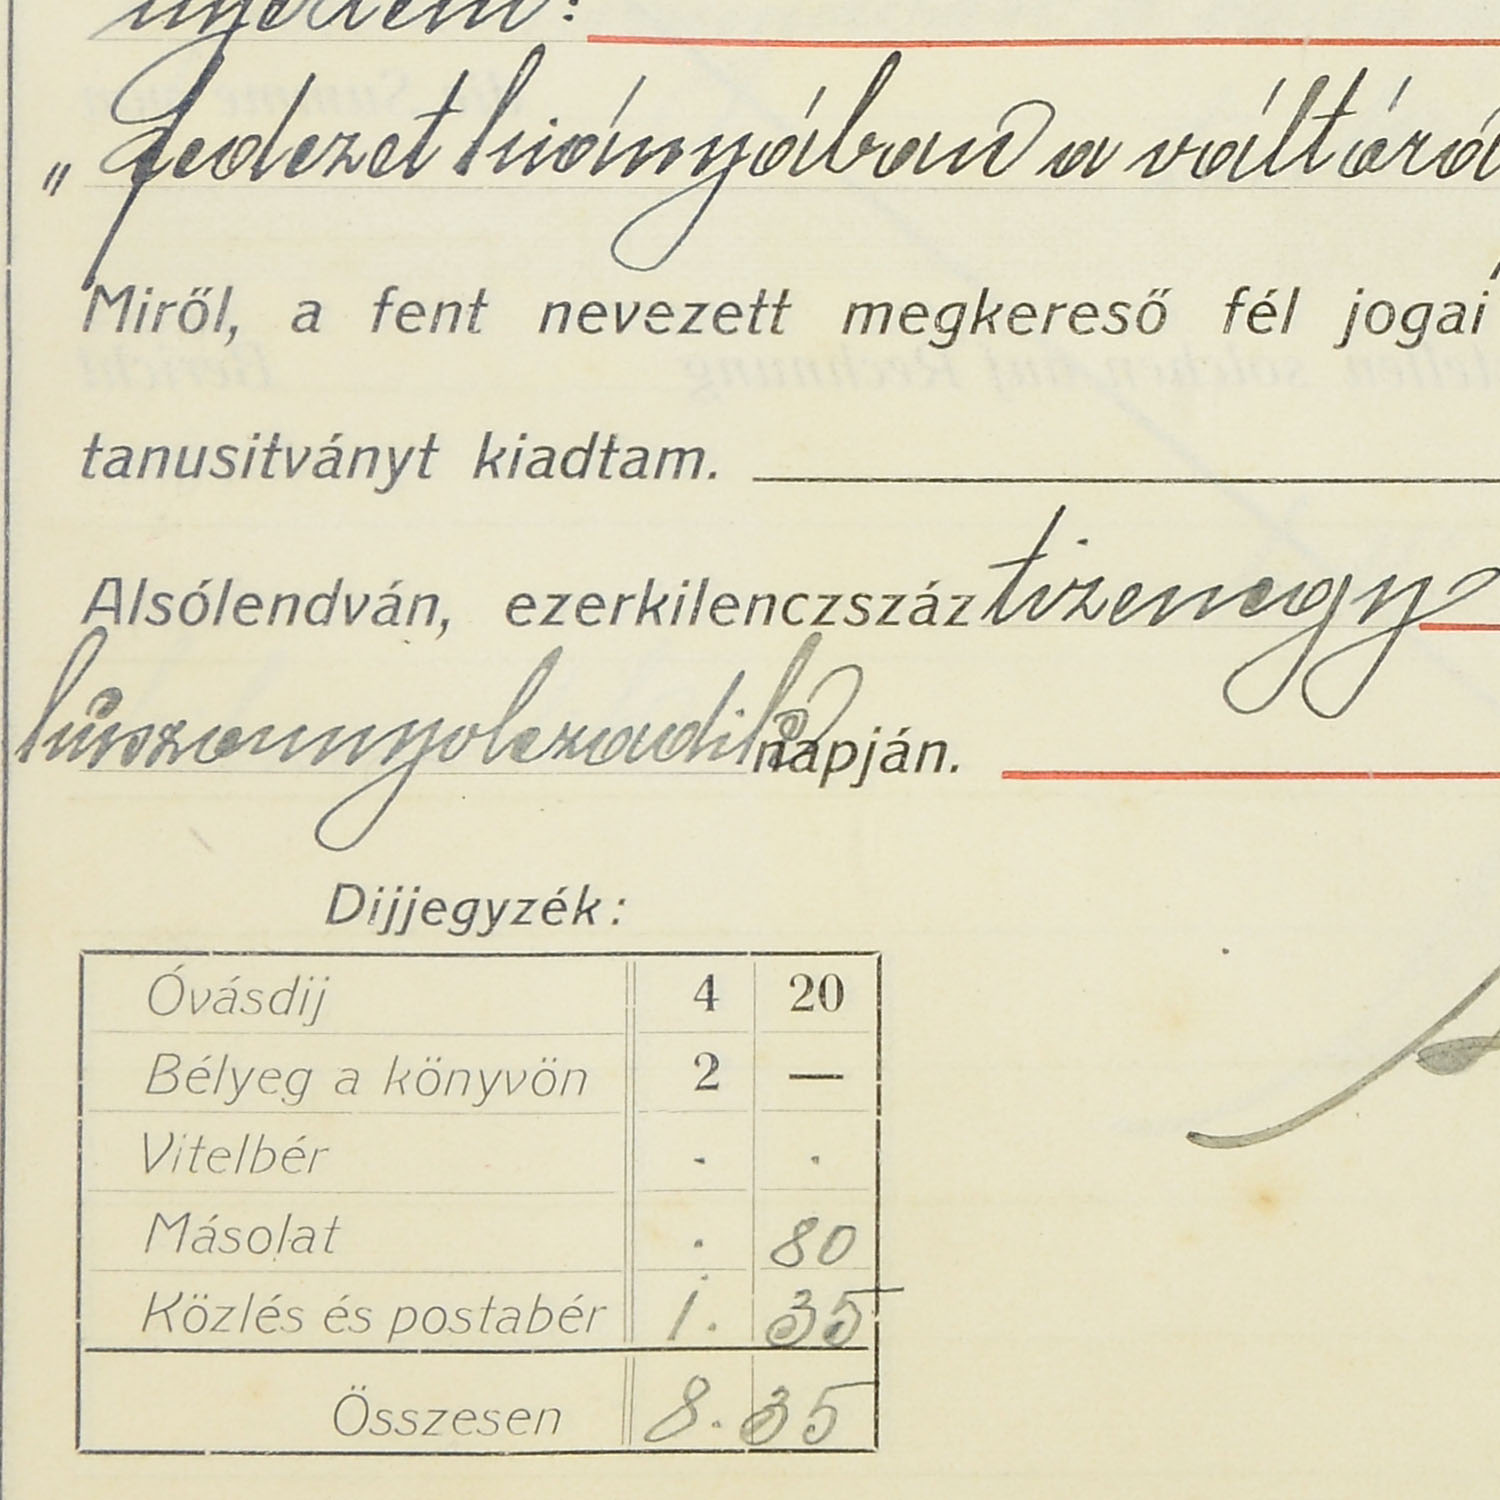 „Fedezet hiányában a váltóra
Miről, a fent nevezett megkereső fél jogai
tanusitványt kiadtam.
Alsólendván, ezerkilenczszáz tizenegy
huszonnyolczadik napján.
Dijjegyzék:
Óvásdij 4 20
Bélyeg a könyvön 2 —
Vitelbér . .
Másolat . 80
Közlés és postabér 1. 35
Összesen 8. 35